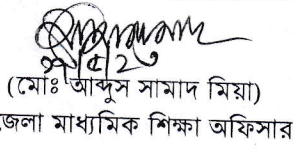 (মোঃ আব্দুস সামাদ মিয়া)
জেলা মাধ্যমিক শিক্ষা অফিসার